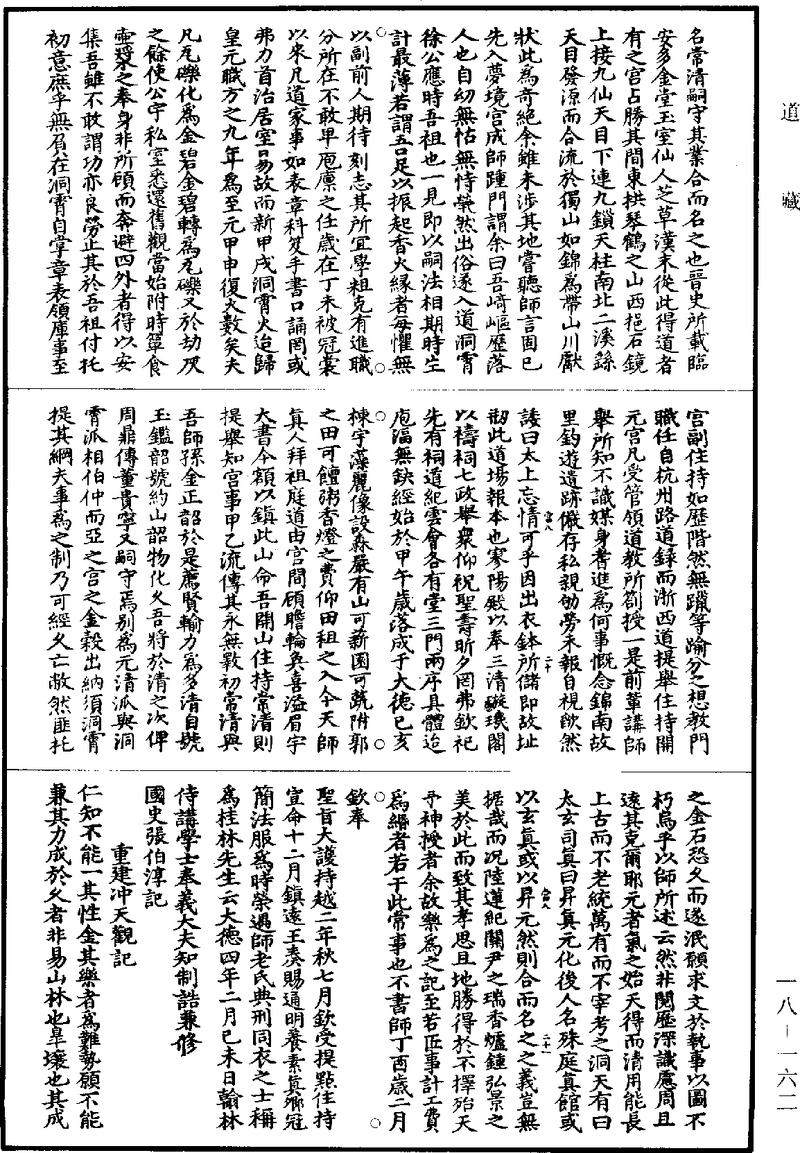 道藏
名常清嗣守其業合而名之也晉史所載臨
安多金堂玉室仙人芝草漢末從此得道者
有之宮占勝其間東拱琴鶴之山西挹石鏡
上接九仙天目下連九鎖天柱南北二溪繇
天目發源而合流於獨山如錦為帶山川獻
狀此為奇絕余雖未涉其地嘗聽師言固已
先入夢境宮成師踵門謂余曰吾﨑嶇歷落
人也自幼無怙無恃煢然出俗遂入道洞霄
徐公應時吾祖也一見即以嗣法相期時生
計最薄若謂五口足以振起香火緣者每懼無
以副前人期待刻志其所宜學粗克有進職
分所在不敢卑庖廩之任歲在丁未被冠裳
以來凡道家事如表章科笈手書口誦罔或
弗力首治居室曰易故而新甲戌洞霄火迨歸
皇元職方之九年為至元甲申復火數矣夫
凡瓦礫化為金碧金碧轉為瓦礫又於劫灰
之餘使公宇私室悉還舊觀當始附時簞食
壺漿之奉身非所顧而奔避四外者得以安
集吾雖不敢謂功亦良勞止其於吾祖付托
初意庶乎無負在洞霄自掌章表領庫事至
宮副住持如歷階然無躐等踰分之想教門
職任自杭州路道錄而浙西道提舉住持開
元宮凡受管領道教所劄授一是前輩講師
舉所知不識媒身耆進為何事慨念錦南故
里鈞遊遺跡儼存私親劬勞未報自視欿然
諉曰太上忘情可乎因出衣鉢所儲即故址
剏此道場報本也寥陽殿以奉三清璇璣閣
以禱祠七政舉眾仰祝聖壽昕夕罔弗欽祀
先有祠道紀雲會各有堂三門兩序具體迨
庖湢無缺經始於甲午歲落成于大德己亥
棟宇藻麗像設森嚴有山可薪園可蔬附郭
之田可饘粥香燈之費仰田租之入今天師
真人拜祖庭道由宮間顧瞻輪奐喜溢眉宇
大書今額以鎮此山命吾開山住持常清則
提舉知宮事甲乙流傳其永無斁初常清與
吾師孫金正韶於是薦賢輸力為多清自號
玉鑑韶號約山韶物化久吾將於清之次俾
周鼎傳董貴寧又嗣守焉別為元清派與洞
霄派相伯仲而亞之宮之金穀出納須洞霄
提其綱夫事為之制乃可經久亡敝然匪托
之金石恐久而遂泯願求文於執事以圖不
朽烏乎以師所述云然非閱歷深識慮周且
遠其克爾耶元者氣之始天得而清用能長
上古而不老統萬有而不宰考之洞天有曰
太玄司真曰昇真元化後人名殊庭真館或
以玄真或以昇元然則合而名之之義豈無
据哉而况陸蓮紀關尹之瑞香爐鍾弘景之
美於此而致其孝思且地勝得於不擇殆天
乎神授者余故樂為之記至若匠事計工費
為緡者若干此常事也不書師丁酉歲二月
欽奉
聖旨大護持越二年秋七月欽受提點住持
宣命十二月鎮遠王奏賜通明養素真人冠
簡法服為時榮遇師老氏典刑同衣之士稱
為桂林先生云大德四年二月己未日翰林
侍講學士奉議大夫知制誥兼修
國史張伯淳記
重建冲天觀記
仁知不能一其性金其樂者為難勢願不能
兼其力成於久者非易山林也皐壤也其成
一八－一六二